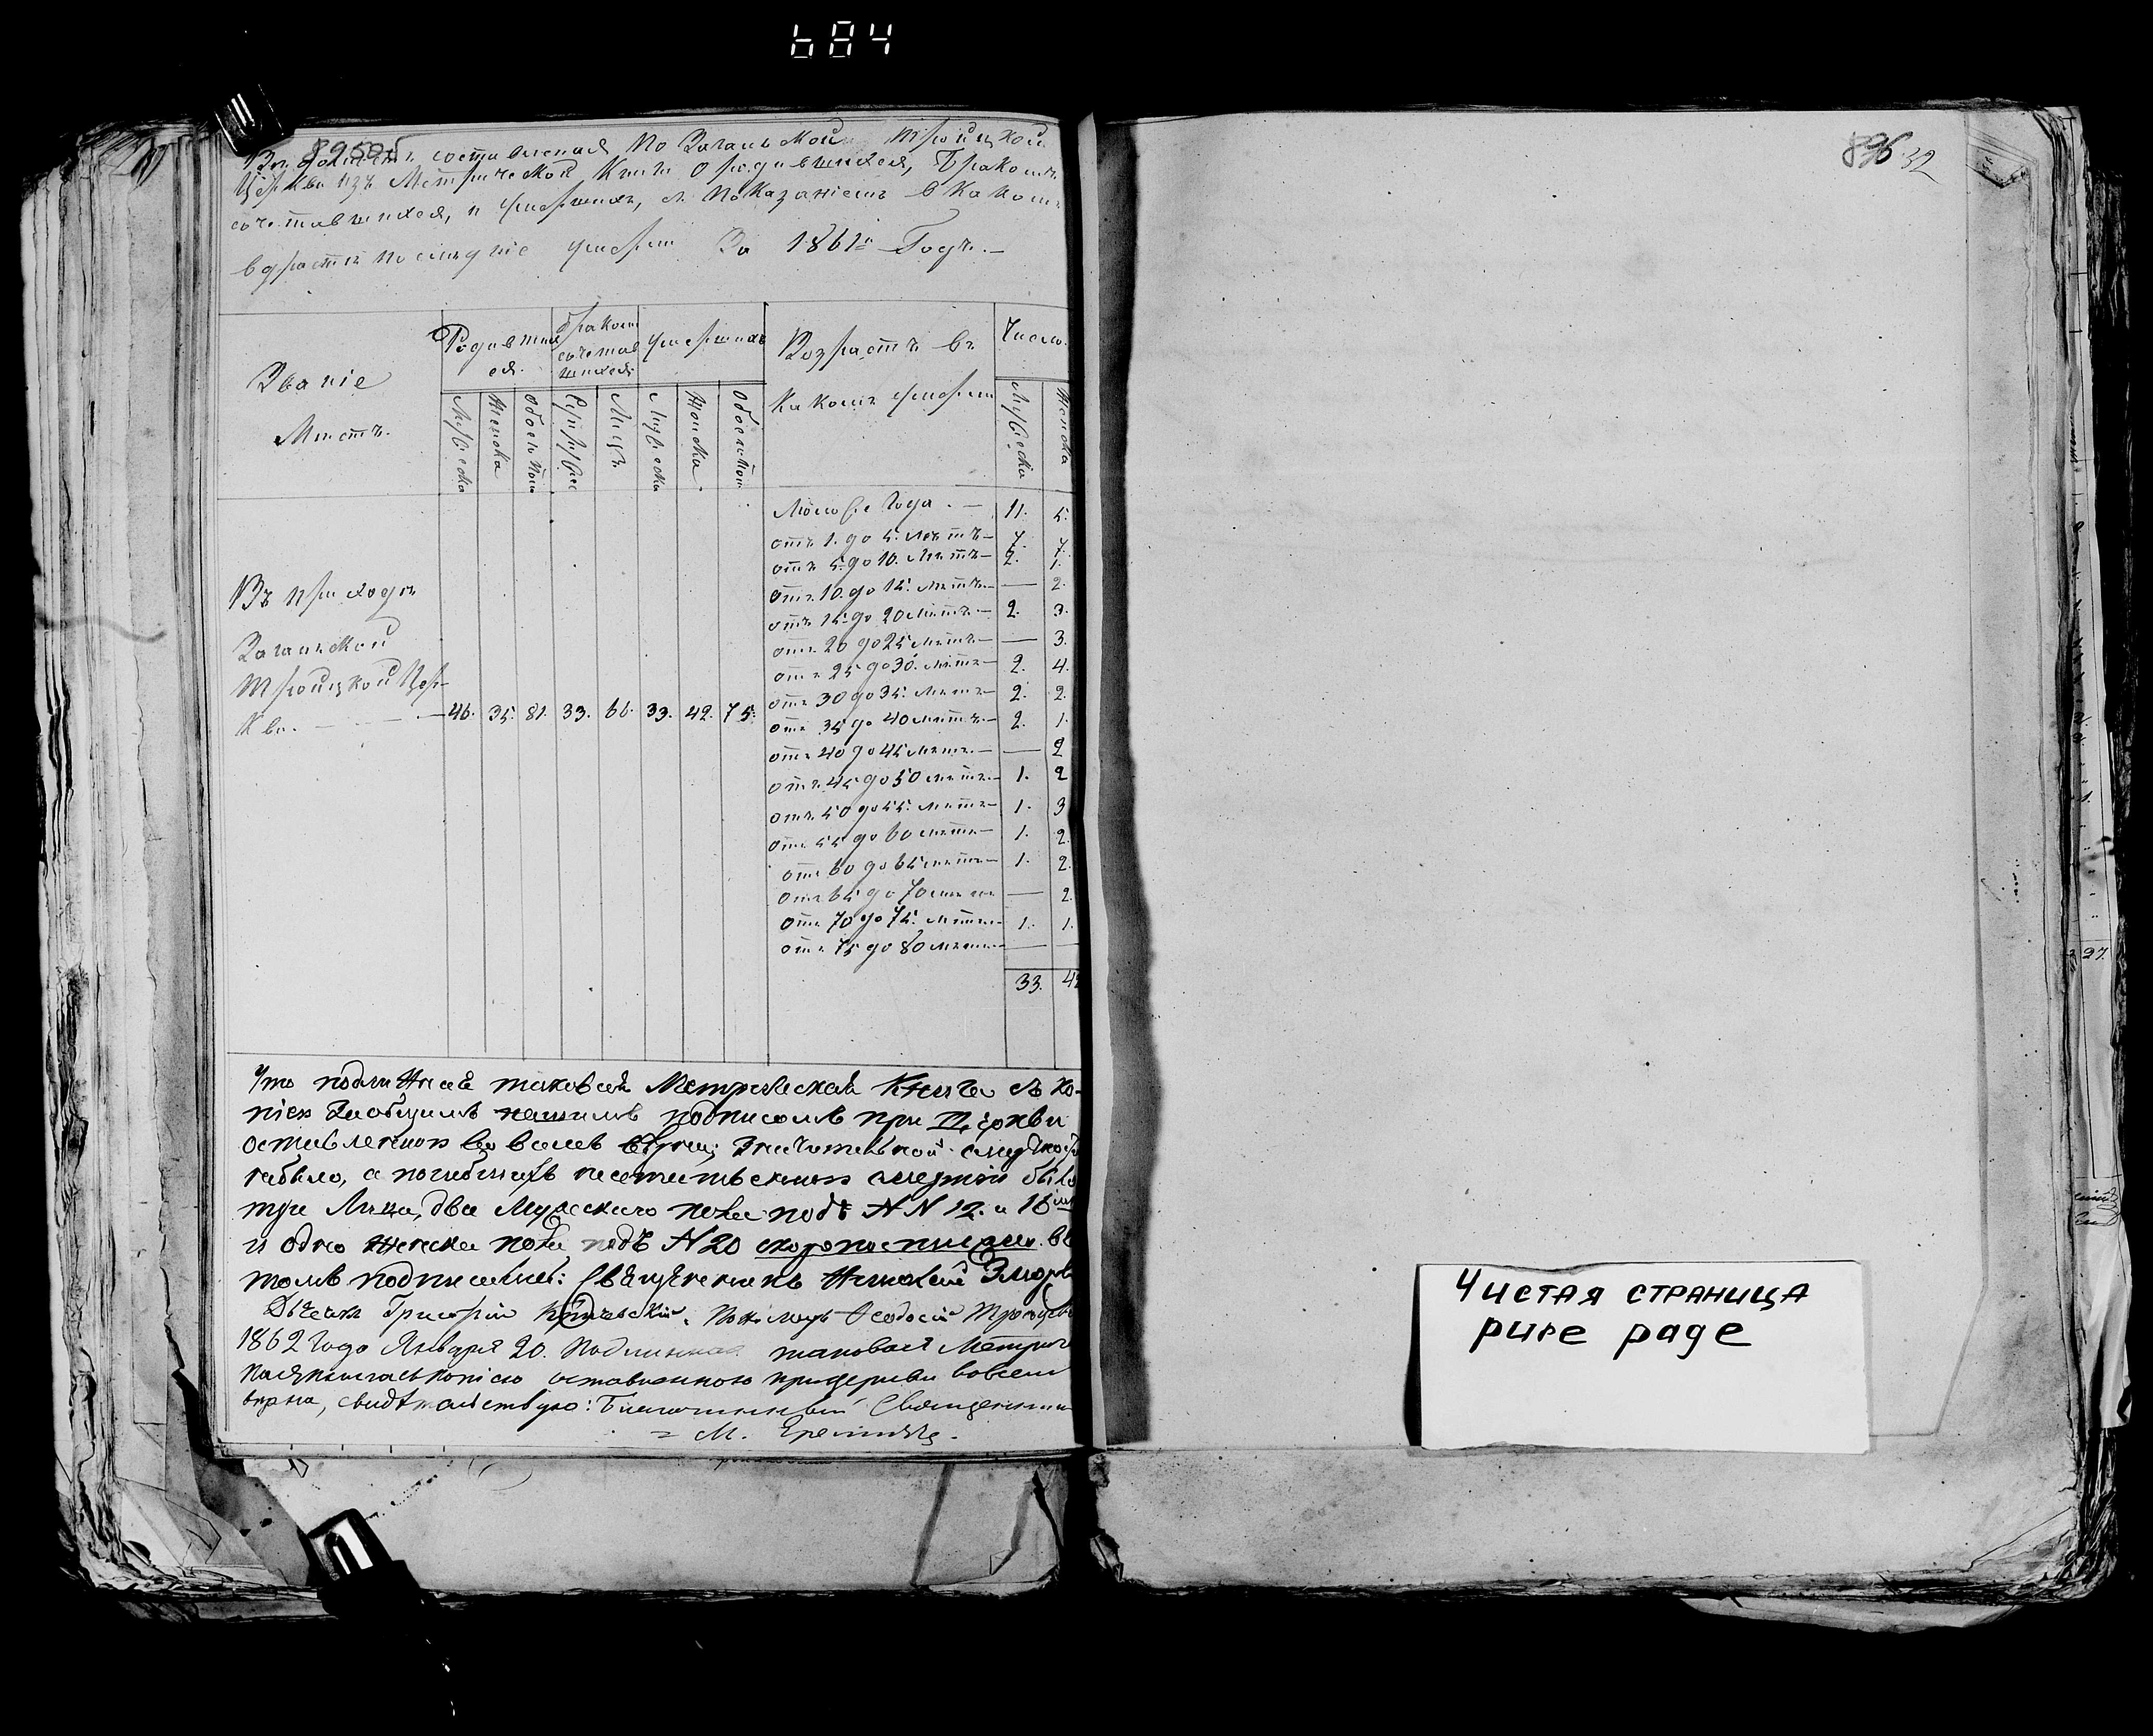 684
895об
Вѣдомость составленная по Заганьской Троицкой
Церкви изъ Метрической Книги о родившихся, бракомъ
сочетавшихся, и умершихъ, съ показаніемъ в какомъ
возрастѣ послѣдніе умерли За 1861й Годъ.
Званіе
Мѣстъ.
Родивших
ся.
Мужеска
Женска
Обоего пола
бракомъ
сочетав
шихся
Супружес
Лицъ
умершихъ
Мужеска
Женска
Обоего пола
Возрастъ въ
какомъ умерли
Число.
Мужеска
Женска
Въ приходѣ
Заганьской
Троицкой Цер-
кви. 46. 35. 81. 33. 66. 33. 42. 75.
Моложе Года. — 11. 5.
отъ 1. до 5. лѣтъ — 7. 7.
отъ 5. до 10. лѣтъ — 2. 1.
отъ 10. до 15. лѣтъ — — 2.
отъ 15. до 20 лѣтъ — 2. 3.
отъ 20 до 25 лѣтъ — — 3.
отъ 25 до 30. лѣтъ — 2. 4.
отъ 30 до 35. лѣтъ — 2. 2.
отъ 35 до 40 лѣтъ — 2. 1.
отъ 40 до 45 лѣтъ — — 2
отъ 45 до 50 лѣтъ — 1. 2
отъ 50 до 55. лѣтъ — 1. 3
отъ 55 до 60 лѣтъ — 1. 2.
отъ 60 до 65 лѣтъ — 1. 2.
отъ 65 до 70 лѣтъ — 2.
отъ 70 до 75. лѣтъ — 1. 1.
отъ 75 до 80 лѣтъ — — —
33. 42
Что подлинная таковая Метрическая Книга съ ко-
піею за общимъ нашимъ подписомъ при Церкви
оставленною во всемъ вѣрна;
небыло, а погибшихъ несчастною смертію было
три Лица, два Мужескаго пола подъ NN 12. и 18
и одно женска пола подъ N 20 скоропостижно. въ
томъ подписались: Священникъ Николай
Дьячекъ Григорій Пономарь Ѳеодосій
1862 Года Января 20. Подлинная таковая Метриче
ская книга съ копіею оставленною при церкви вовсемъ
вѣрна, свидѣтельствую: Благочинный Священникъ
М.
896 32
Чистая страница
pure page
27.